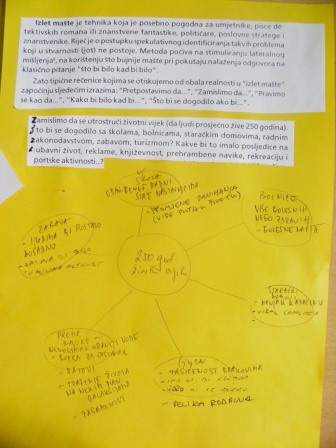 Izlet mašte je tehnika koja je posebno pogodna za umjetnike, pisce de-
tektivskih romana ili znanstvene fantastike, političare, poslovne stratege i
znanstvenike. Riječ je o postupku spekulativnog identificiranja takvih problema
koji u stvarnosti (još) ne postoje. Metoda počiva na stimuliranju lateralnog
mišljenja, na korištenju što bujnije mašte pri pokušaju nalaženja odgovora na
klasično pitanje "što bi bilo kad bi bilo".
Zato tipične rečenice kojima se otiskujemo od obala realnosti u "izlet mašte"
započinju sljedećim izrazima: "Pretpostavimo da...", "Zamislimo da...", "Pravimo
se kao da...", "Kako bi bilo kad bi...", "Što bi se dogodilo ako bi...".
Zamislimo da se utrostruči životni vijek (da ljudi prosječno žive 250 godina).
Što bi se dogodilo sa školama, bolnicama, staračkim domovima, radnim
zakonodavstvom, zabavom, turizmom? Kakve bi to imalo posljedice na
ljubavni život, reklame, književnost, prehrambene navike, rekreaciju i
portske aktivnosti..?
ŠKOLA
- PROMJENE ZANIMANJA
(VIŠE PUTA U ŽIVOTU)
BOLNICE
VIŠE BOLESNIH
NEGO ZDRAVIH
ZABAVA
- LJUDIMA BI POSTALO
DOSADNO
250 god.
životni vijek
STARAČKI
DOMOVI
- MANJAK KAPACITETA
PREHR.
NAVIKE -
NEDOSTATAK HRANE I VODE
- BORBA ZA OPSTANAK
- RATOVI
- TRAŽENJE ŽIVOTA
NA NEKIM DRUGIM
GALAKSIJAMA
LJUBAV
- ZASIĆENOST BRAKOVIMA
- VELIKA RODBINA